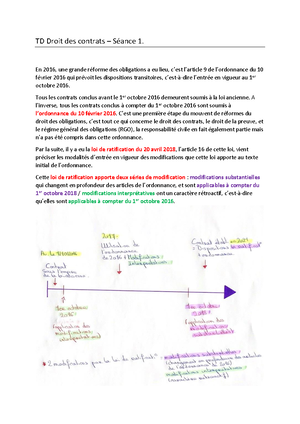 TD Droit des contrats – Séance 1.
En 2016, une grande réforme des obligations a eu lieu, c'est l'article 9 de l'ordonnance du 10
février 2016 qui prévoit les dispositions transitoires, c'est-à-dire l'entrée en vigueur au 1er
octobre 2016.
Tous les contrats conclus avant le 1er octobre 2016 demeurent soumis à la loi ancienne. A
l'inverse, tous les contrats conclus à compter du 1er octobre 2016 sont soumis à
l'ordonnance du 10 février 2016. C'est une première étape du mouvement de réformes du
droit des obligations, c'est tout ce qui concerne le droit des contrats, le droit de la preuve, et
le régime général des obligations (RGO), la responsabilité civile en fait également partie mais
n'a pas été compris dans cette ordonnance.
Par la suite, il y a eu la loi de ratification du 20 avril 2018, l'article 16 de cette loi, vient
préciser les modalités d'entrée en vigueur des modifications que cette loi apporte au texte
initial de l'ordonnance.
Cette loi de ratification apporte deux séries de modification : modifications substantielles
qui changent en profondeur des articles de l'ordonnance, et sont applicables à compter du
1er octobre 2018 / modifications interprétatives ont un caractère rétroactif, c'est-à-dire
qu'elles sont applicables à compter du 1er octobre 2016.
2017
Utilisation de
l'ordonnance
de 2016 + Modifications
interprétatives
Contrat
1er octobre
2016
Application des
modifications
interprétatives
1er octobre
2018
Application
des modifications
* 2 modifications par la loi de ratificat°
modifications substantielles
modifications interprétatives
(caractère rétroactif)